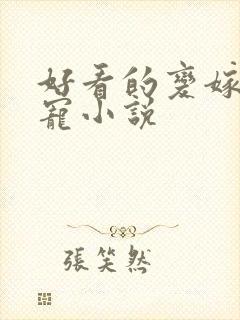 好看的變嫁
寵小說
張笑然